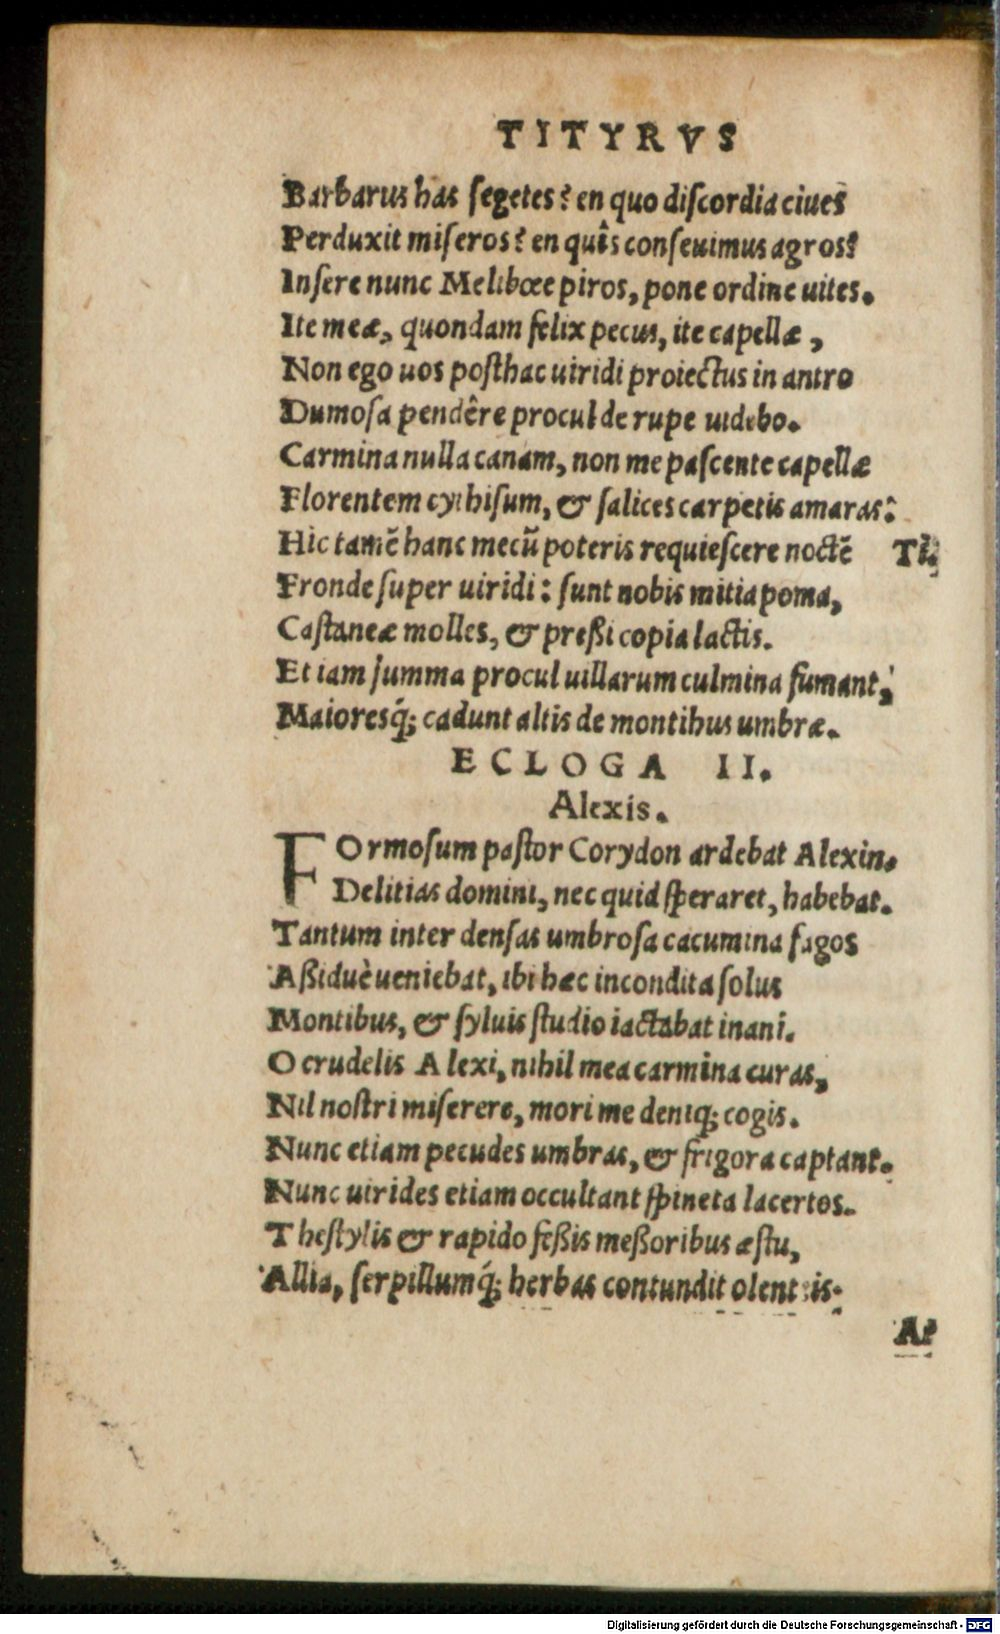 TITYRVS
Barbarus has segetes? en quo discordia ciues
Perduxit miseros? en quîs conseuimus agros?
Insere nunc Melibœe piros, pone ordine uites.
Ite meæ, quondam felix pecus, ite capellæ,
Non ego uos posthac uiridi proiectus in antro
Dumosa pendêre procul de rupe uidebo.
Carmina nulla canam, non me pascente capellæ
Florentem cythisum, & salices carpetis amaras.
Hic tamē hanc mecū poteris requiescere noctē Ti.
Fronde super uiridi: sunt nobis mitia poma,
Castaneæ molles, & preßi copia lactis.
Et iam summa procul uillarum culmina fumant,
Maioresq́; cadunt altis de montibus umbræ.
ECLOGA II.
Alexis.
FOrmosum pastor Corydon ardebat Alexin.
Delitias domini, nec quid speraret, habebat.
Tantum inter densas umbrosa cacumina fagos
Aßiduè ueniebat, ibi hæc incondita solus
Montibus, & syluis studio iactabat inani.
O crudelis Alexi, nihil mea carmina curas,
Nil nostri miserere, mori me deniq; cogis.
Nunc etiam pecudes umbras, & frigora captant.
Nunc uirides etiam occultant spineta lacertos.
Thestylis & rapido feßis meßoribus æstu,
Allia, serpillumq́; herbas contundit olenteis.
Digitalisierung gefördert durch die Deutsche Forschungsgemeinschaft - DFG